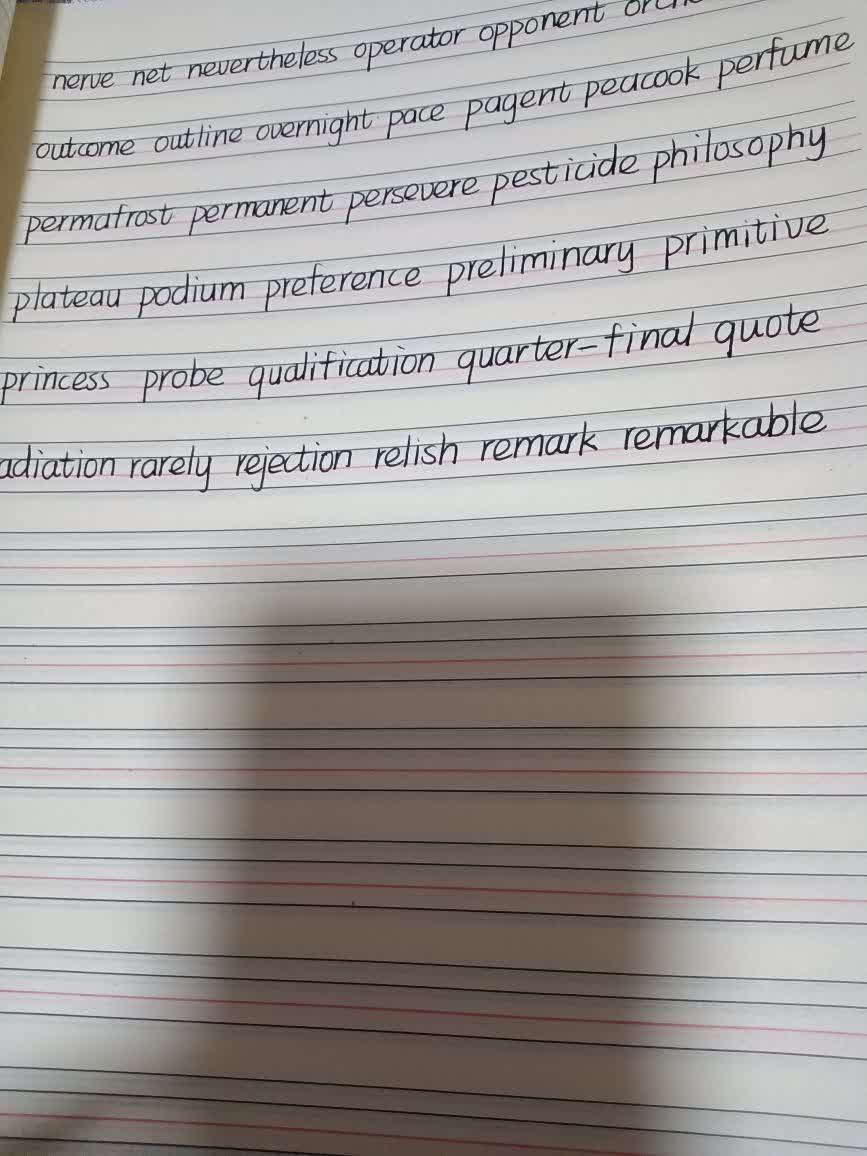 nerve net nevertheless operator opponent
outcome outline overnight pace pagent peacook perfume
permafrost permanent persevere pesticide philosophy
plateau podium preference preliminary primitive
princess probe qualification quarter-final quote
adiation rarely rejection relish remark remarkable